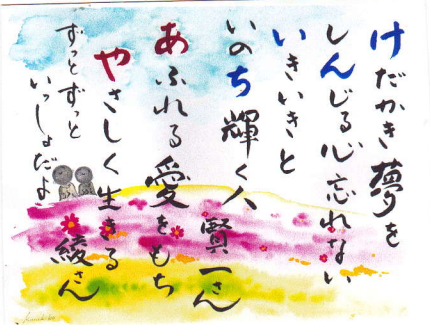 けだかき夢を
しんじる心忘れない
いきいきと
いのち輝く人
賢一さん
あふれる愛をもち
やさしく生きる
綾さん
ずっとずっと
いっしょだよ